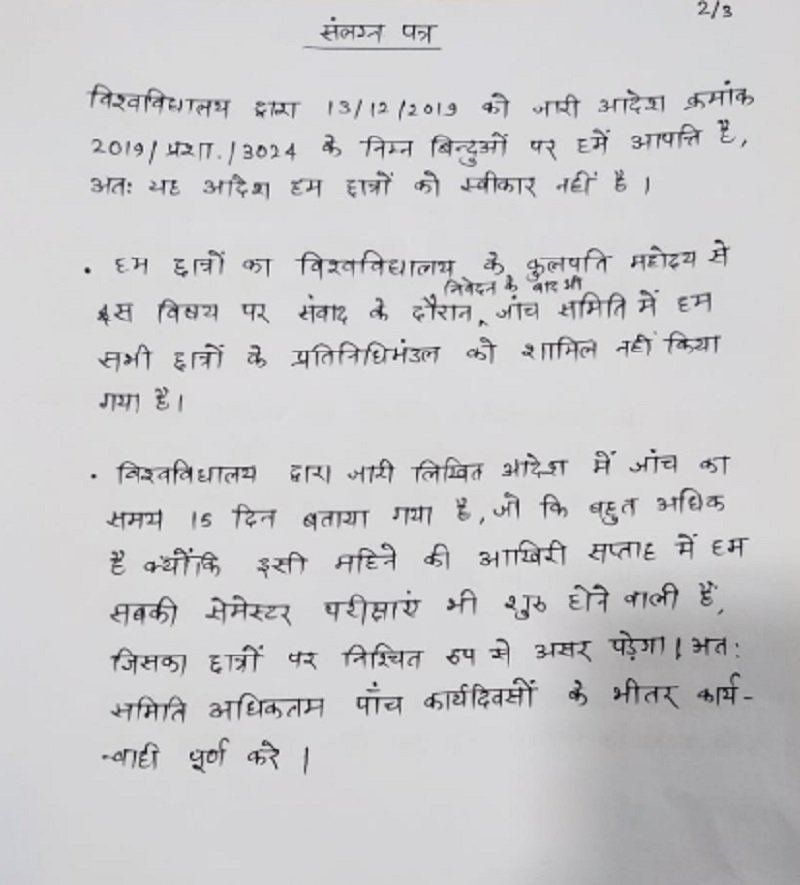 2/3
संलग्न पत्र
विश्वविद्यालय द्वारा 13/12/2019 को जारी आदेश क्रमांक
2019/प्रशा./3024 के निम्न बिन्दुओं पर हमें आपत्ति है,
अतः यह आदेश हम छात्रों को स्वीकार नहीं है ।
• हम छात्रों का विश्वविद्यालय के कुलपति महोदय से
निवेदन के बाद भी
इस विषय पर संवाद के दौरान, जांच समिति में हम
सभी छात्रों के प्रतिनिधिमंडल को शामिल नहीं किया
गया है।
• विश्वविद्यालय द्वारा जारी लिखित आदेश में जांच का
समय 15 दिन बताया गया है, जो कि बहुत अधिक
है क्योंकि इसी महिने की आखिरी सप्ताह में हम
सबकी सेमेस्टर परीक्षाएं भी शुरु होने वाली हैं,
जिसका छात्रों पर निश्चित रुप से असर पड़ेगा। अतः
समिति अधिकतम पाँच कार्यदिवसों के भीतर कार्य-
-वाही पूर्ण करे ।